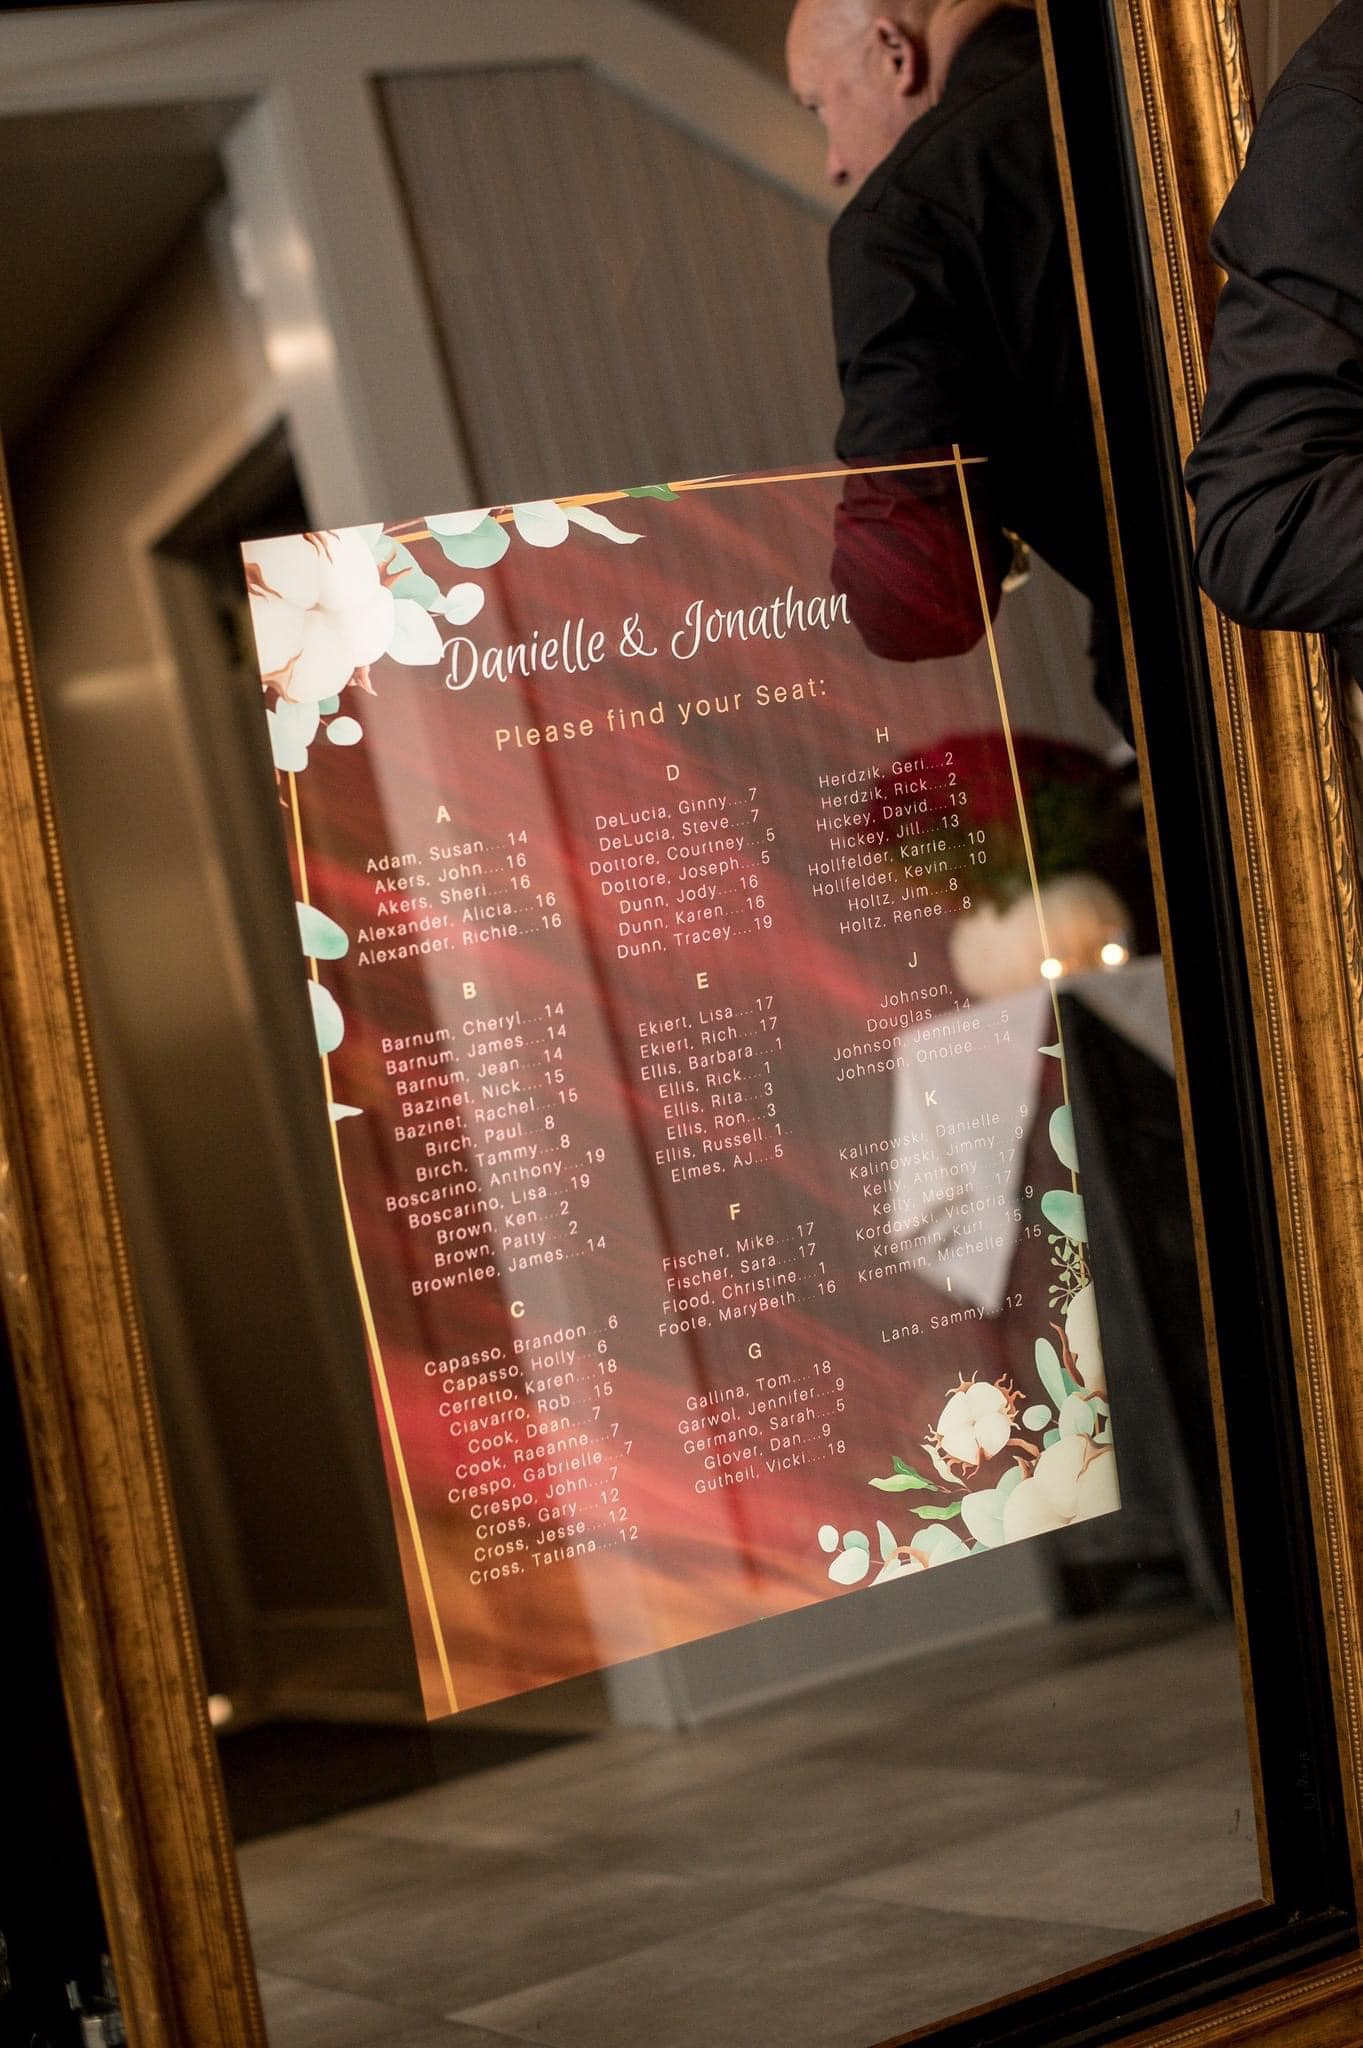 Danielle & Jonathan
Please find your Seat:
A
Adam, Susan....14
Akers, John....16
Akers, Sheri....16
Alexander, Alicia....16
Alexander, Richie....16
B
Barnum, Cheryl....14
Barnum, James....14
Barnum, Jean....14
Bazinet, Nick....15
Bazinet, Rachel....15
Birch, Paul....8
Birch, Tammy....8
Boscarino, Anthony....19
Boscarino, Lisa....19
Brown, Ken....2
Brown, Patty....2
Brownlee, James....14
C
Capasso, Brandon....6
Capasso, Holly....6
Cerretto, Karen....18
Ciavarro, Rob....15
Cook, Dean....7
Cook, Raeanne....7
Crespo, Gabrielle....7
Crespo, John....7
Cross, Gary....12
Cross, Jesse....12
Cross, Tatiana....12
D
DeLucia, Ginny....7
DeLucia, Steve....7
Dottore, Courtney....5
Dottore, Joseph....5
Dunn, Jody....16
Dunn, Karen....16
Dunn, Tracey....19
E
Ekiert, Lisa....17
Ekiert, Rich....17
Ellis, Barbara....1
Ellis, Rick....1
Ellis, Rita....3
Ellis, Ron....3
Ellis, Russell....1
Elmes, AJ....5
F
Fischer, Mike....17
Fischer, Sara....17
Flood, Christine....1
Foote, MaryBeth....16
G
Gallina, Tom....18
Garwol, Jennifer....9
Germano, Sarah....5
Glover, Dan....9
Gutheil, Vicki....18
H
Herdzik, Geri....2
Herdzik, Rick....2
Hickey, David....13
Hickey, Jill....13
Hollfelder, Karrie....10
Hollfelder, Kevin....10
Holtz, Jim....8
Holtz, Renee....8
J
Johnson,
Douglas....14
Johnson, Jennilee....5
Johnson, Onolee....14
K
Kalinowski, Danielle....9
Kalinowski, Jimmy....9
Kelly, Anthony....17
Kelly, Megan....17
Kordovski, Victoria....9
Kremmin, Kurt....15
Kremmin, Michelle....15
l
Lana, Sammy....12